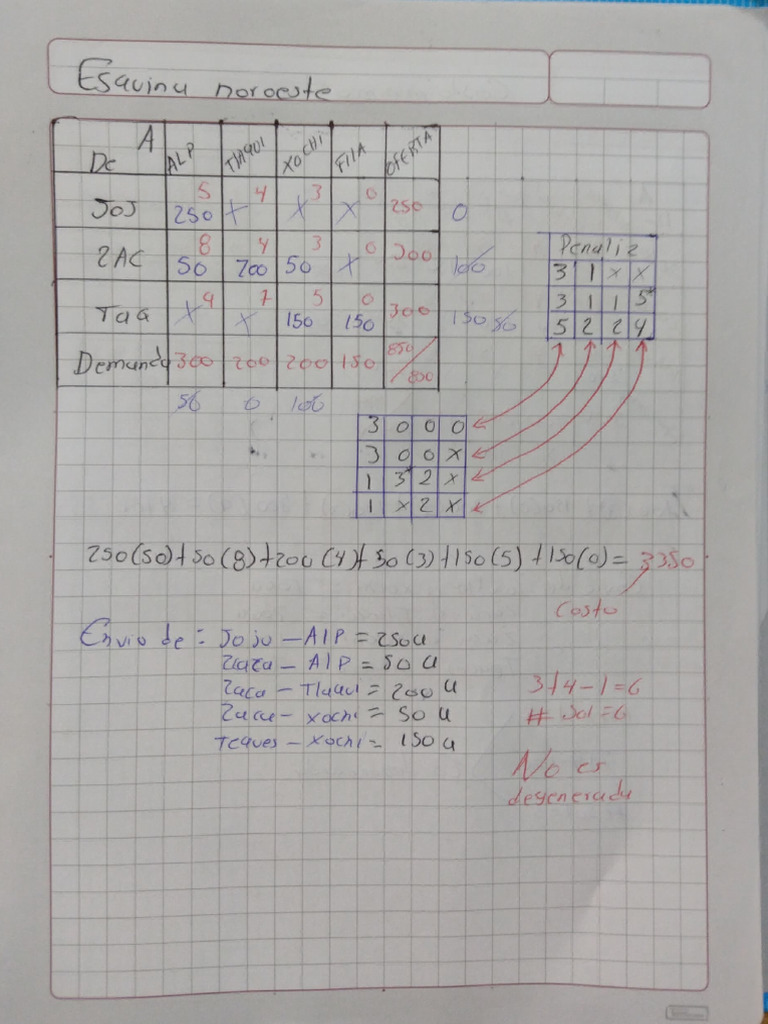 Esquina noroeste
A
De ALP TLAQUI XOCHI FIIA OFERTA
5 4 3 0
JOJ 250 X X X 250 0
8 4 3 0
ZAC 50 200 50 X 300 100
9 7 5 0
Taq X X 150 150 300 150 50
Demanda 300 200 200 150 850/850
50 0 100
Penaliz
3 1 x x
3 1 1 5
5 2 2 4
3 0 0 0
3 0 0 X
1 3 2 x
1 x 2 x
250(50)+50(8)+200(4)+50(3)+150(5)+150(0)= 3350
Costo
Envio de: Joju - AlP = 250u
Zaca - AlP = 50 u
Zaca - Tlaqui = 200 u
Zaca - xochi = 50 u
Teques - xochi = 150 u
3+4-1=6
# Sol=6
No es
degenerada